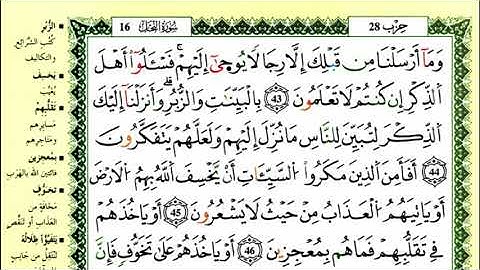 حِزْب 28
سُورَةُ النَّحْلِ
16
وَمَا أَرْسَلْنَا مِن قَبْلِكَ إِلَّا رِجَالًا يُوحَىٰ إِلَيْهِمْ فَسْـَٔلُوا أَهْلَ
الذِّكْرِ إِن كُنتُمْ لَا تَعْلَمُونَ 43 بِالْبَيِّنَٰتِ وَالزُّبُرِ وَأَنزَلْنَا إِلَيْكَ
الذِّكْرَ لِتُبَيِّنَ لِلنَّاسِ مَا نُزِّلَ إِلَيْهِمْ وَلَعَلَّهُمْ يَتَفَكَّرُونَ
44 أَفَأَمِنَ الَّذِينَ مَكَرُوا السَّيِّـَٔاتِ أَن يَّخْسِفَ اللَّهُ بِهِمُ الْأَرْضَ
أَوْ يَاتِيَهُمُ الْعَذَابُ مِنْ حَيْثُ لَا يَشْعُرُونَ 45 أَوْ يَاخُذَهُمْ
فِي تَقَلُّبِهِمْ فَمَا هُم بِمُعْجِزِينَ 46 أَوْ يَاخُذَهُمْ عَلَىٰ تَخَوُّفٍ فَإِنَّ
الزُّبُر
كُتُب الشَّرائع
والتكاليف
يَخْسِف
يُغَيِّب
تَقَلُّبِهِمْ
مسايرهم
ومتاجرهم
بِمُعْجِزِين
فائتين الله بالهرب
تَخَوُّف
مخافة من
العذاب أو تنقُّص
يَتَفَيَّؤُا ظِلَالُهُ
تنتقل من جانب